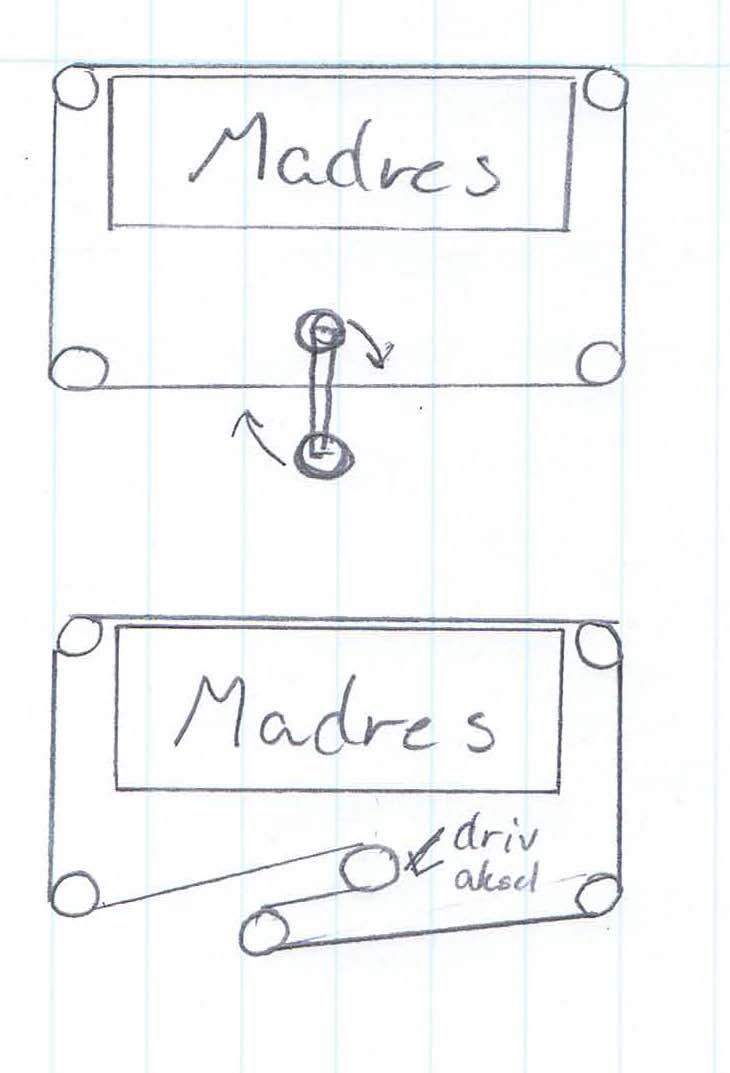 Madres
Madres
driv
aksel